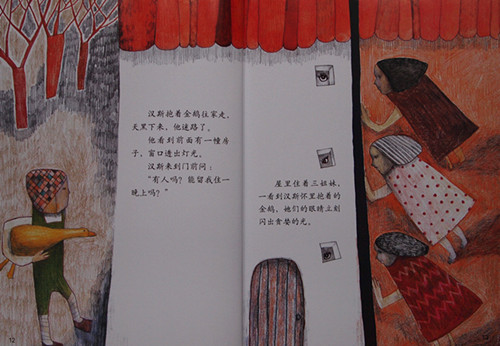 汉斯抱着金鹅往家走，
天黑下来，他迷路了。
他看到前面有一幢房
子，窗口透出灯光。
汉斯来到门前问：
“有人吗？能留我住一
晚上吗？”
屋里住着三姐妹，
一看到汉斯怀里抱着的
金鹅，她们的眼睛立刻
闪出贪婪的光。
12